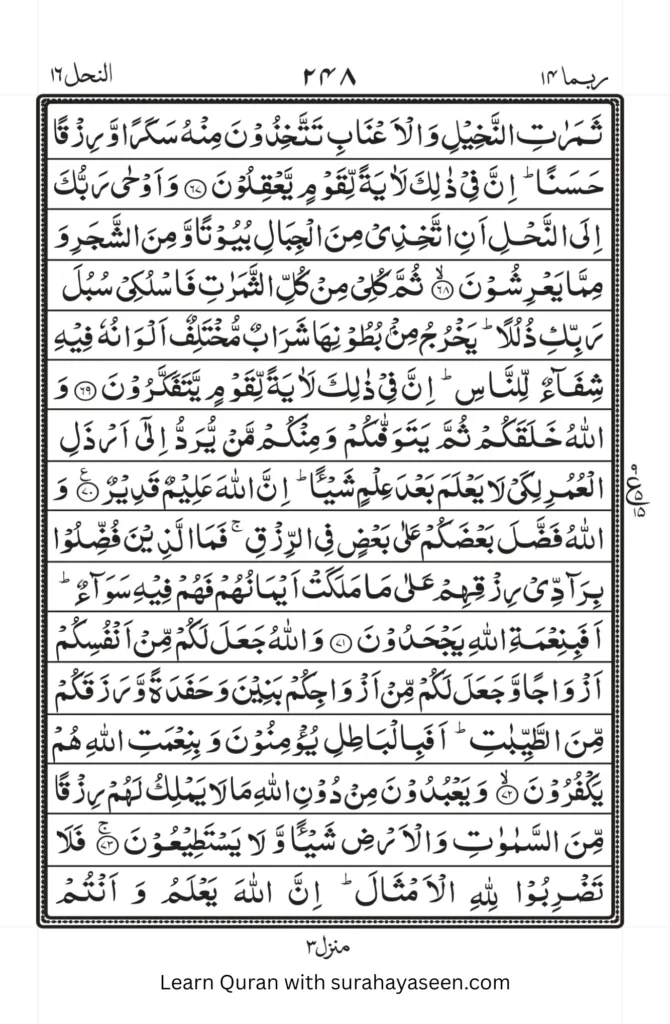 ربما ١٤ ٢٤٨ النحل ١٦
ثَمَرٰتِ النَّخِيْلِ وَالْاَعْنَابِ تَتَّخِذُوْنَ مِنْهُ سَكَرًا وَّرِزْقًا
حَسَنًا ؕ اِنَّ فِيْ ذٰلِكَ لَاٰيَةً لِّقَوْمٍ يَّعْقِلُوْنَ ﴿٦٧﴾ وَاَوْحٰى رَبُّكَ
اِلَى النَّحْلِ اَنِ اتَّخِذِيْ مِنَ الْجِبَالِ بُيُوْتًا وَّمِنَ الشَّجَرِ وَ
مِمَّا يَعْرِشُوْنَ ﴿٦٨﴾ۙ ثُمَّ كُلِيْ مِنْ كُلِّ الثَّمَرٰتِ فَاسْلُكِيْ سُبُلَ
رَبِّكِ ذُلُلًا ؕ يَخْرُجُ مِنْۢ بُطُوْنِهَا شَرَابٌ مُّخْتَلِفٌ اَلْوَانُهٗ فِيْهِ
شِفَآءٌ لِّلنَّاسِ ؕ اِنَّ فِيْ ذٰلِكَ لَاٰيَةً لِّقَوْمٍ يَّتَفَكَّرُوْنَ ﴿٦٩﴾ وَ
اللّٰهُ خَلَقَكُمْ ثُمَّ يَتَوَفّٰىكُمْ وَمِنْكُمْ مَّنْ يُّرَدُّ اِلٰۤى اَرْذَلِ
الْعُمُرِ لِكَيْ لَا يَعْلَمَ بَعْدَ عِلْمٍ شَيْـًٔا ؕ اِنَّ اللّٰهَ عَلِيْمٌ قَدِيْرٌ ﴿٧٠﴾ع وَ
اللّٰهُ فَضَّلَ بَعْضَكُمْ عَلٰى بَعْضٍ فِي الرِّزْقِ ۚ فَمَا الَّذِيْنَ فُضِّلُوْا
بِرَآدِّيْ رِزْقِهِمْ عَلٰى مَا مَلَكَتْ اَيْمَانُهُمْ فَهُمْ فِيْهِ سَوَآءٌ ؕ
اَفَبِنِعْمَةِ اللّٰهِ يَجْحَدُوْنَ ﴿٧١﴾ وَاللّٰهُ جَعَلَ لَكُمْ مِّنْ اَنْفُسِكُمْ
اَزْوَاجًا وَّجَعَلَ لَكُمْ مِّنْ اَزْوَاجِكُمْ بَنِيْنَ وَحَفَدَةً وَّرَزَقَكُمْ
مِّنَ الطَّيِّبٰتِ ؕ اَفَبِالْبَاطِلِ يُؤْمِنُوْنَ وَبِنِعْمَتِ اللّٰهِ هُمْ
يَكْفُرُوْنَ ﴿٧٢﴾ۙ وَيَعْبُدُوْنَ مِنْ دُوْنِ اللّٰهِ مَا لَا يَمْلِكُ لَهُمْ رِزْقًا
مِّنَ السَّمٰوٰتِ وَالْاَرْضِ شَيْـًٔا وَّلَا يَسْتَطِيْعُوْنَ ﴿٧٣﴾ۚ فَلَا
تَضْرِبُوْا لِلّٰهِ الْاَمْثَالَ ؕ اِنَّ اللّٰهَ يَعْلَمُ وَاَنْتُمْ
منزل ٣
Learn Quran with surahayaseen.com